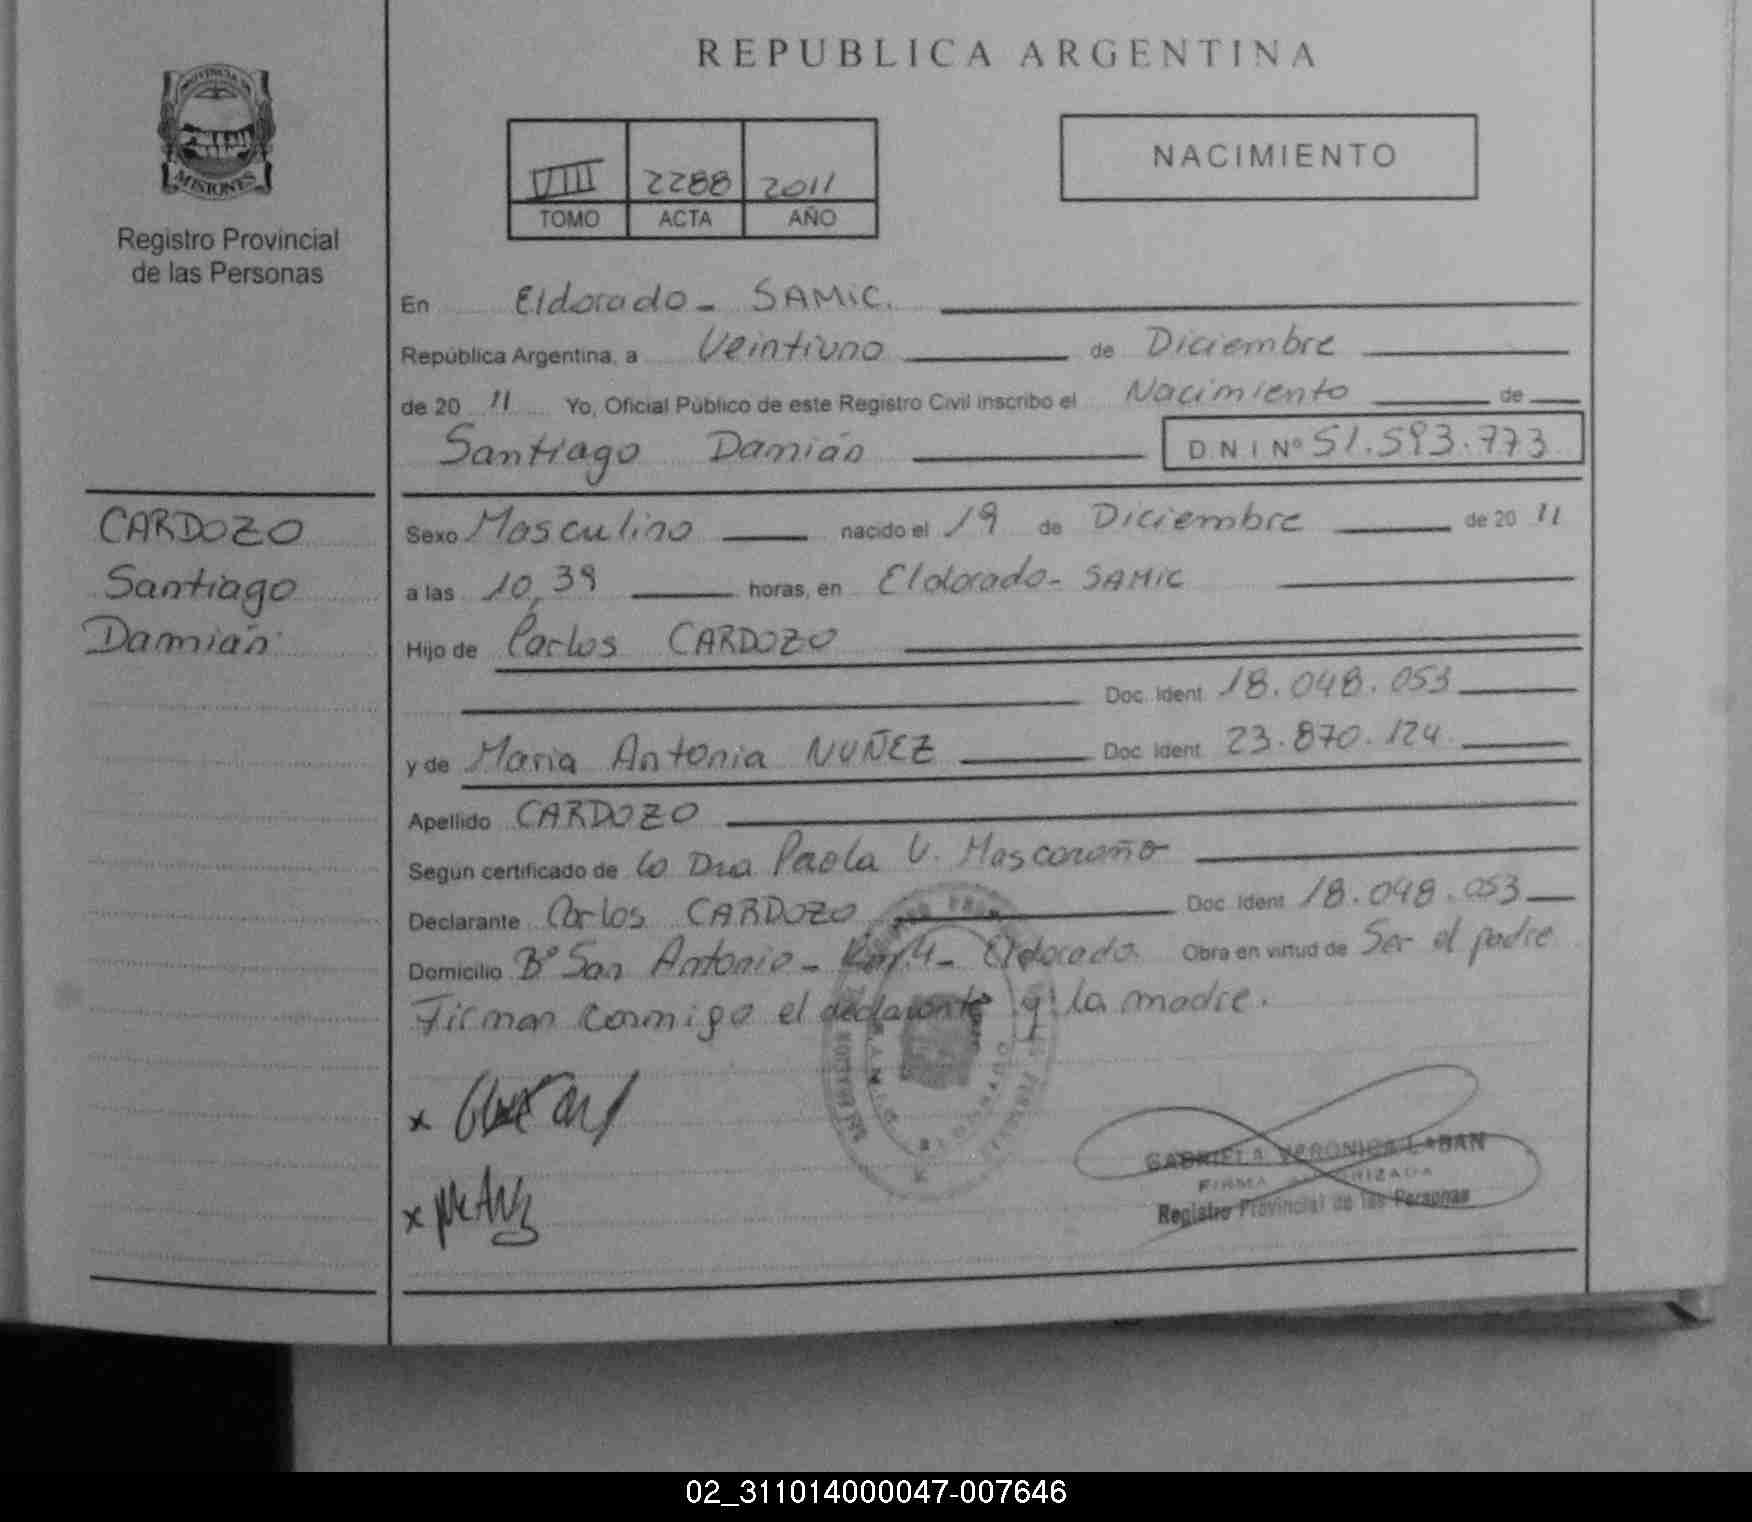 REPUBLICA ARGENTINA
PROVINCIA DE
MISIONES
Registro Provincial
de las Personas
VIII 2288 2011
TOMO ACTA AÑO
NACIMIENTO
En Eldorado - SAMIC.
República Argentina, a Veintiuno de Diciembre
de 20 11 Yo, Oficial Público de este Registro Civil inscribo el Nacimiento de
Santiago Damián D N I Nº 51.593.773
CARDOZO
Santiago
Damián
Sexo Masculino nacido el 19 de Diciembre de 20 11
a las 10,39 horas, en Eldorado - SAMIC
Hijo de Carlos CARDOZO
Doc. Ident. 18.048.053
y de Maria Antonia NUÑEZ Doc. Ident. 23.870.124
Apellido CARDOZO
Según certificado de la Dra Paola V.
Declarante Carlos CARDOZO Doc. Ident. 18.048.053
Domicilio Bº San Antonio - Km.4 - Eldorado. Obra en virtud de Ser el padre
Firman conmigo el declarante y la madre.
GABRIELA VERONICA LABAN
FIRMA AUTORIZADA
Registro Provincial de las Personas
02_311014000047-007646